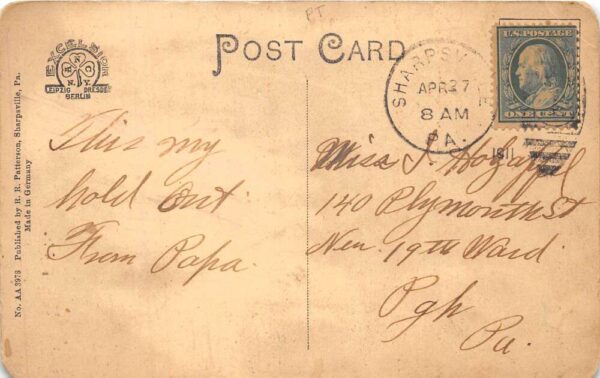 PT
POST CARD
EXCELSIOR
A N C
N.Y.
LEIPZIG DRESDEN
BERLIN
No. AA 3978 Published by R. R. Patterson, Sharpsville, Pa.
Made in Germany
SHARPSVILLE
APR 27
8 AM
1911
PA.
U.S. POSTAGE
ONE CENT
This my
hold out
From Papa.
Miss J. Holzapfel
140 Plymouth St
New 19th Ward.
Pgh
Pa.